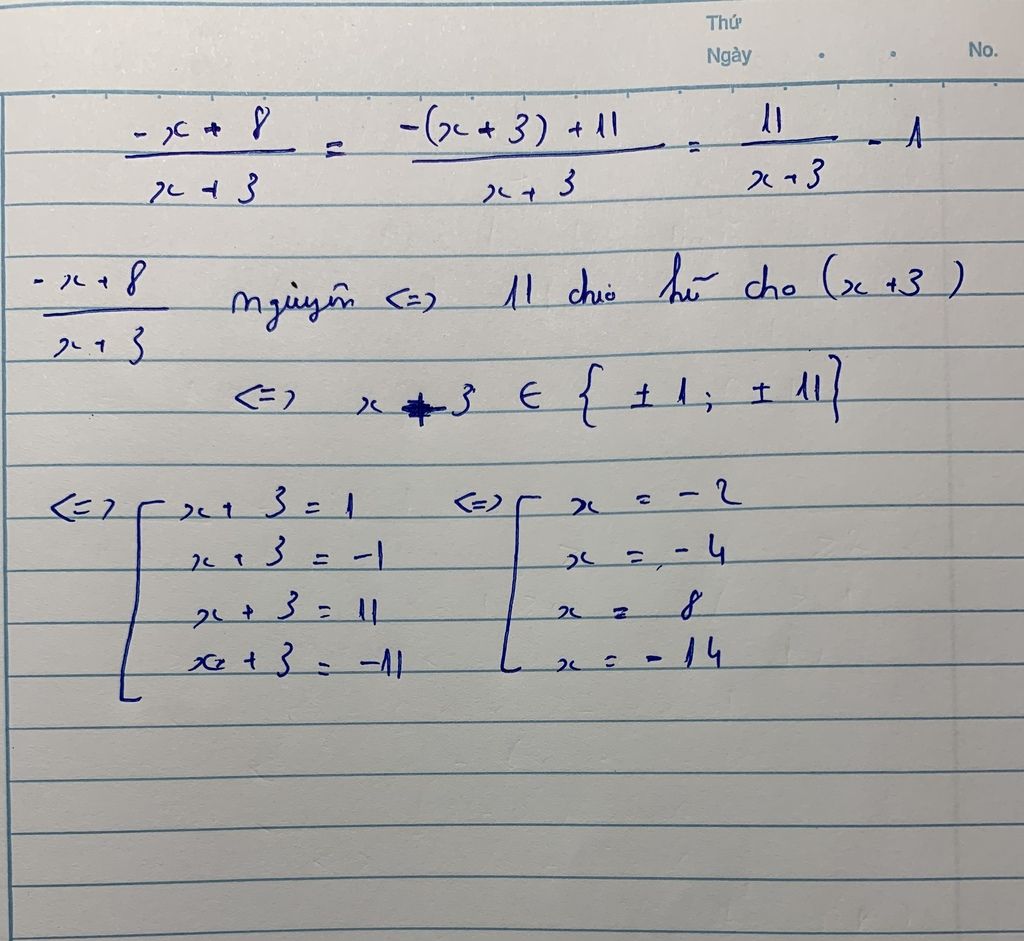 Thứ
Ngày . . No.
(-x + 8)/(x + 3) = (-(x + 3) + 11)/(x + 3) = 11/(x + 3) - 1
(-x + 8)/(x + 3) nguyên <=> 11 chia hế cho (x + 3)
<=> x + 3 ∈ { ± 1; ± 11}
<=> [ x + 3 = 1 <=> [ x = - 2
x + 3 = -1 x = - 4
x + 3 = 11 x = 8
x + 3 = -11 x = - 14